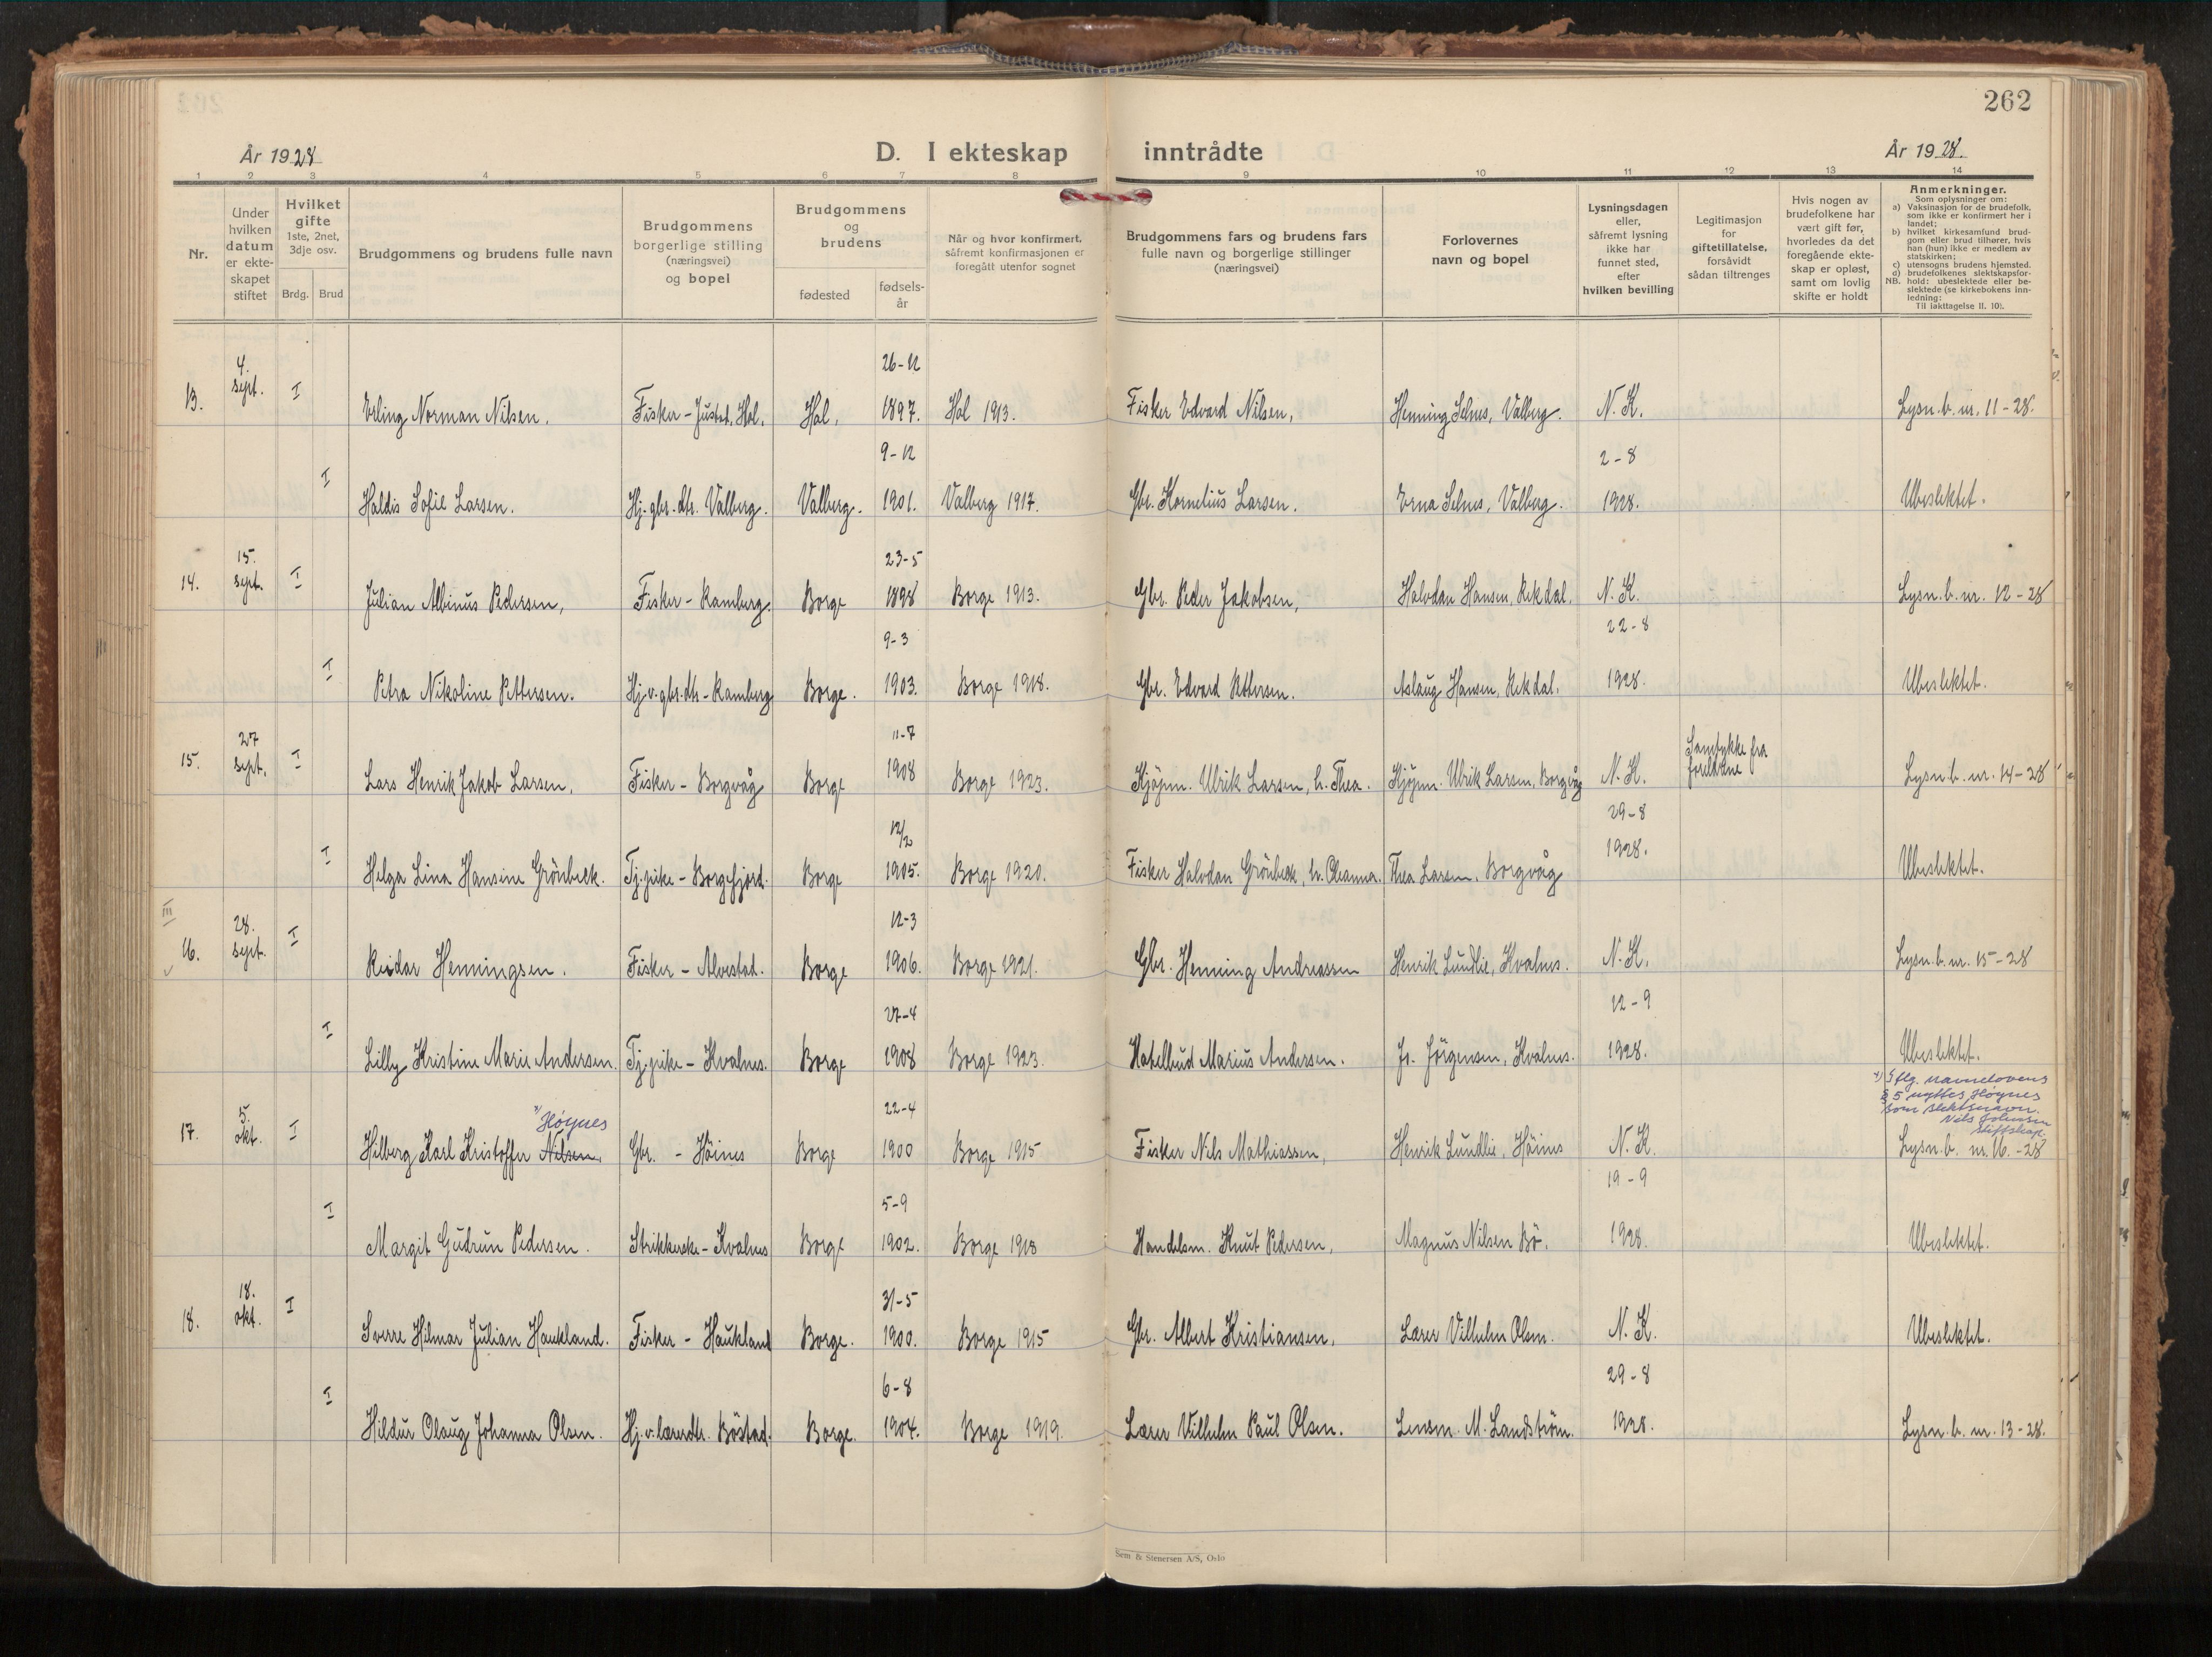 262
År 1928
D. I ekteskap inntrådte
År 1928.
1 2 3 4 5 6 7 8 9 10 11 12 13 14
Nr.
Under hvilken datum er ekteskapet stiftet
Hvilket gifte
1ste, 2net, 3dje osv.
Brdg. Brud
Brudgommens og brudens fulle navn
Brudgommens borgerlige stilling (næringsvei) og bopel
Brudgommens og brudens
fødested
fødselsår
Når og hvor konfirmert, såfremt konfirmasjonen er foregått utenfor sognet
Brudgommens fars og brudens fars fulle navn og borgerlige stillinger (næringsvei)
Forlovernes navn og bopel
Lysningsdagen eller, såfremt lysning ikke har funnet sted, efter hvilken bevilling
Legitimasjon for giftetillatelse, forsåvidt sådan tiltrenges
Hvis nogen av brudefolkene har vært gift før, hvorledes da det foregående ekteskap er opløst, samt om lovlig skifte er holdt
Anmerkninger.
Som oplysninger om:
a) Vaksinasjon for de brudefolk, som ikke er konfirmert her i landet;
b) hvilket kirkesamfund brudgom eller brud tilhører, hvis han (hun) ikke er medlem av statskirken;
c) utensogns brudens hjemsted.
d) brudefolkenes slektskapsforhold: ubeslektede eller beslektede (se kirkebokens innledning:
NB.
Til iakttagelse II. 10).
13. 4. sept. I Erling Norman Nilsen. Fisker - Justad, Hol. Hol. 26-12 1897. Hol 1913. Fisker Edvard Nilsen, Henning Selnes, Valberg. N. K. Lysn. b. nr. 11-28.
I Haldis Sofie Larsen. Hj. gbr. dtr. Valberg. Valberg. 9-12 1901. Valberg 1917. Gbr. Kornelius Larsen. Erna Selnes, Valberg. 2-8 1928. Ubeslektet.
14. 15. sept. I Julian Albinus Pedersen, Fisker - Ramberg. Borge 23-5 1898 Borge 1913. Gbr. Peder Jakobsen, Halvdan Hansen, Rekdal. N. K. Lysn. b. nr. 12-28
I Petra Nikoline Pettersen. Hj. v. gbr. dtr - Ramberg Borge. 9-3 1903. Borge 1918. Gbr. Edvard Pettersen. Aslaug Hansen, Rekdal. 22-8 1928. Ubeslektet.
15. 27 sept. I Lars Henrik Jakob Larsen. Fisker - Borgvåg Borge 11-7 1908 Borge 1923. Kjøpm. Ulrik Larsen, h. Thea. Kjøpm. Ulrik Larsen, Borgvåg N. K. Samtykke fra foreldrene Lysn. b. nr. 14-28
I Helga Lina Hansine Grönbeck. Tj. pike - Borgefjord. Borge 12/2 1905. Borge 1920. Fisker Halvdan Grönbeck, h. Oleanna. Thea Larsen, Borgvåg 29-8 1928. Ubeslektet.
III
16. 28. sept. I Reidar Henningsen. Fisker - Alvestad. Borge 12-3 1906. Borge 1921. Gbr. Henning Andreassen Henrik Lundlie, Kvalnes. N. K. Lysn. b. nr. 15-28
I Lilly Kristine Marie Andersen. Tj. pike - Kvalnes. Borge 27-4 1908 Borge 1923. Hotellbud Marius Andersen. Jo. Jörgensen, Kvalnes. 12-9 1928. Ubeslektet.
x) Iflg. navnelovens
§ 5 nyttes Høynes
som slektsnavn.
Nils Johnsen
stiftskap.
x) Høynes
17. 5. okt. I Hilberg Karl Kristoffer Nilsen. Gbr. - Höines Borge 22-4 1900 Borge 1915 Fisker Nils Mathiassen, Henrik Lundlie, Höines N. K. Lysn. b. nr. 16.-28
I Margit Gudrun Pedersen. Strikkerske - Kvalnes Borge 5-9 1902. Borge 1918 Handelsm. Knut Pedersen, Magnus Nilsen Bö. 19-9 1928. Ubeslektet.
18. 18. okt. I Sverre Hilmar Julian Haukland. Fisker - Haukland Borge. 31-5 1900. Borge 1915 Gbr. Albert Kristiansen, Lærer Vilhelm Olsen. N. K. Ubeslektet.
I Hildur Olaug Johanna Olsen. Hj. v. lærerdtr. Böstad. Borge. 6-8 1904. Borge 1919. Lærer Vilhelm Paul Olsen. Lensm. M. Landström. 29-8 1928. Lysn. b. nr. 13-28.
Sem & Stenersen A/S, Oslo